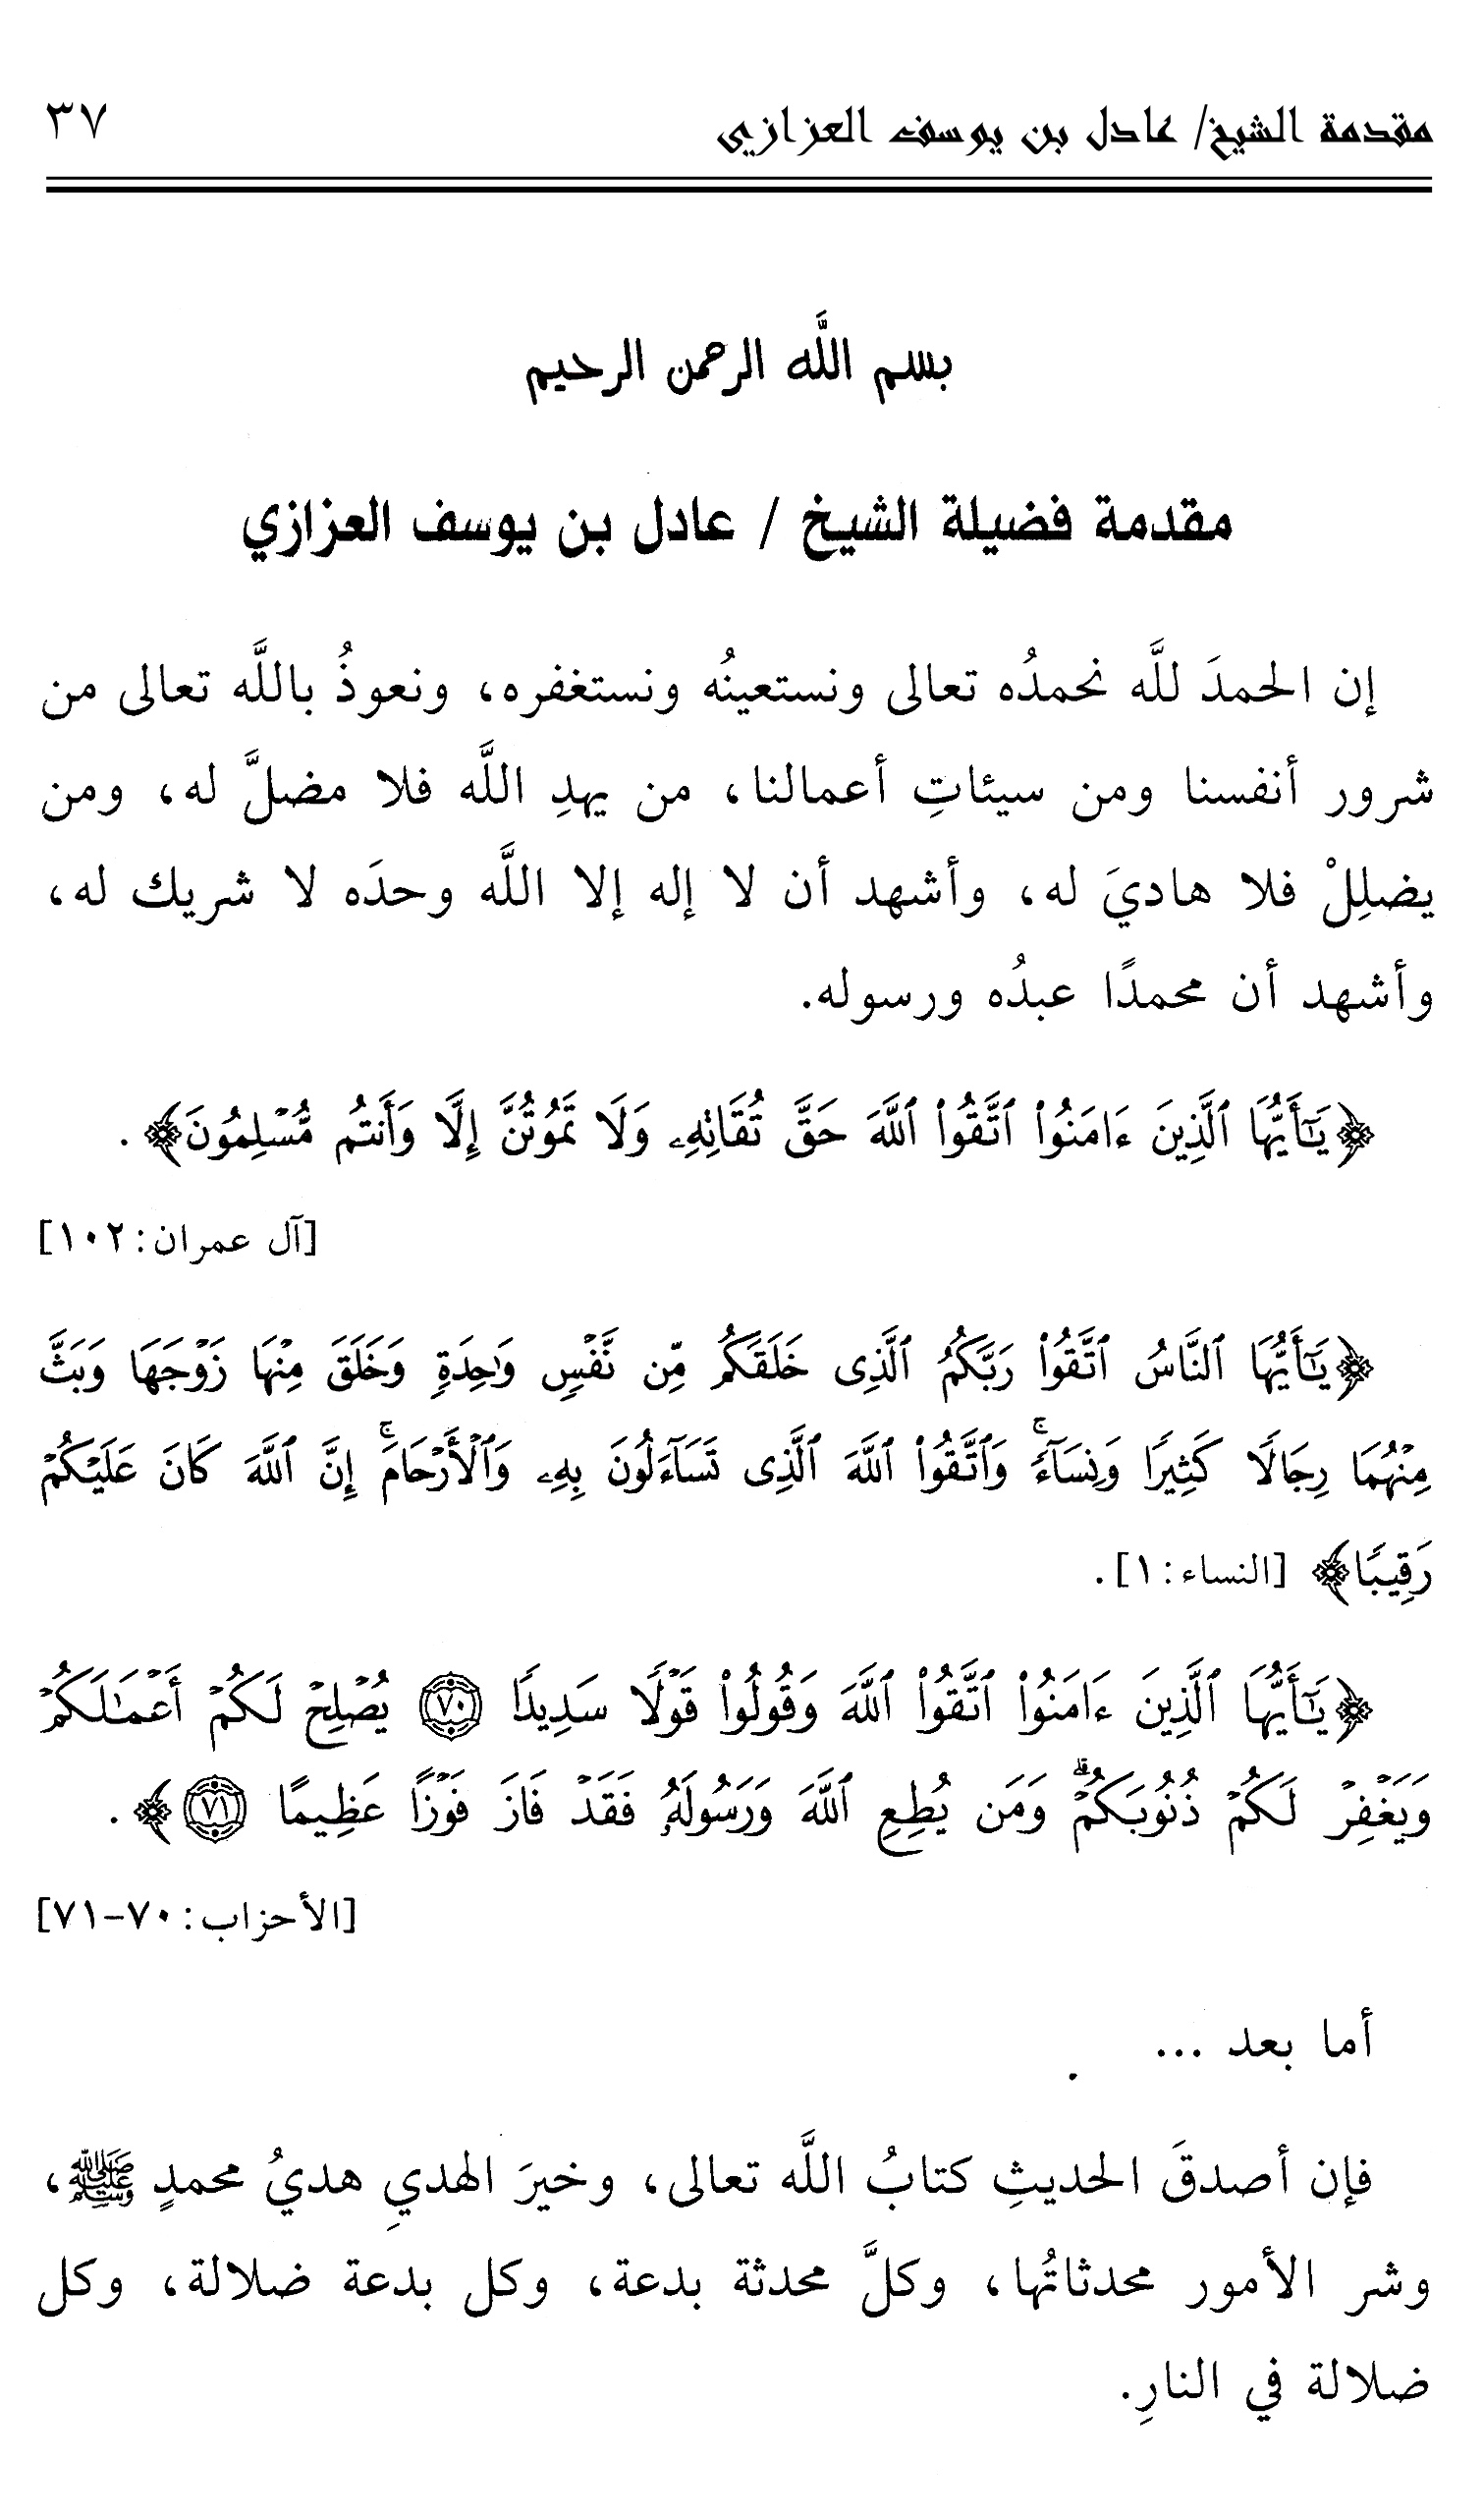 مقدمة الشيخ/ عادل بن يوسف العزازي ٣٧
بسم اللَّه الرحمن الرحيم
مقدمة فضيلة الشيخ / عادل بن يوسف العزازي
إن الحمدَ للَّه نحمدُه تعالى ونستعينُه ونستغفره، ونعوذُ باللَّه تعالى من
شرور أنفسنا ومن سيئاتِ أعمالنا، من يهدِ اللَّه فلا مضلَّ له، ومن
يضلِلْ فلا هاديَ له، وأشهد أن لا إله إلا اللَّه وحدَه لا شريك له،
وأشهد أن محمدًا عبدُه ورسوله.
﴿يَٰٓأَيُّهَا ٱلَّذِينَ ءَامَنُوا۟ ٱتَّقُوا۟ ٱللَّهَ حَقَّ تُقَاتِهِۦ وَلَا تَمُوتُنَّ إِلَّا وَأَنتُم مُّسْلِمُونَ﴾ .
[آل عمران: ١٠٢]
﴿يَٰٓأَيُّهَا ٱلنَّاسُ ٱتَّقُوا۟ رَبَّكُمُ ٱلَّذِى خَلَقَكُم مِّن نَّفْسٍ وَٰحِدَةٍ وَخَلَقَ مِنْهَا زَوْجَهَا وَبَثَّ
مِنْهُمَا رِجَالًا كَثِيرًا وَنِسَآءً ۚ وَٱتَّقُوا۟ ٱللَّهَ ٱلَّذِى تَسَآءَلُونَ بِهِۦ وَٱلْأَرْحَامَ ۚ إِنَّ ٱللَّهَ كَانَ عَلَيْكُمْ
رَقِيبًا﴾ [النساء: ١] .
﴿يَٰٓأَيُّهَا ٱلَّذِينَ ءَامَنُوا۟ ٱتَّقُوا۟ ٱللَّهَ وَقُولُوا۟ قَوْلًا سَدِيدًا ٧٠ يُصْلِحْ لَكُمْ أَعْمَٰلَكُمْ
وَيَغْفِرْ لَكُمْ ذُنُوبَكُمْ ۗ وَمَن يُطِعِ ٱللَّهَ وَرَسُولَهُۥ فَقَدْ فَازَ فَوْزًا عَظِيمًا ٧١﴾ .
[الأحزاب: ٧٠-٧١]
أما بعد ...
فإن أصدقَ الحديثِ كتابُ اللَّه تعالى، وخيرَ الهديِ هديُ محمدٍ ﷺ،
وشر الأمور محدثاتُها، وكلَّ محدثة بدعة، وكل بدعة ضلالة، وكل
ضلالة في النارِ.